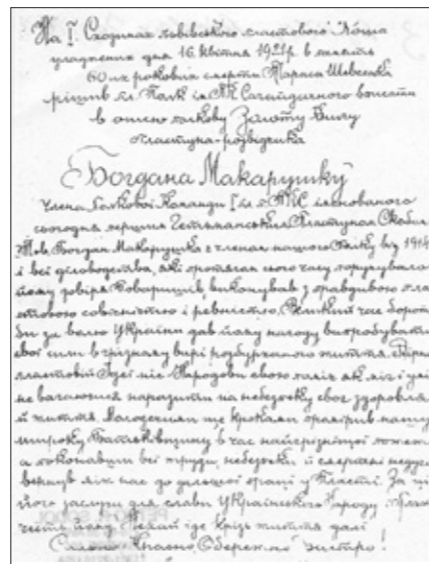 На I. Сходинах львівського пластового Коша
уладжених дня 16. квітня 1921 р. в память
60-их роковин смерти Тараса Шевченка
рішив I. п. Полк ім. П.К. Сагайдачного вписати
в отсю полкову Золоту Книгу
пластуна-розвідчика
Богдана Макарушку
члена полкової Команди I п. п. ПКС іменованого
сьогодня першим Гетьманським Пластуном Скобом
Тов. Богдан Макарушка є членом нашого Полку від 19
і всі діловодства, які протягом сього часу поручувало
йому довірє Товаришів, виконував з правдивою пла-
стовою совістністю і ревністю. Великий час бороть-
би за волю України дав йому нагоду випробувати
свої сили в грізному вирі розбурханого життя. Вірн
пластовій Ідеї ніс Народови свою поміч як міг і умі
не вагаючися наразити на небезпеку своє здоровля
й життя. кроками нашу
широку Батьківщину в час найгрізнішої пожежі
а поконавши всі труди, небезпеки й смертні недуги
вернув між нас до дальшої праці у Пласті. За ці
його заслуги для слави Українського Народу
честь йому. Нехай іде крізь життя далі
Сильно! Красно! Обережно! Бистро!